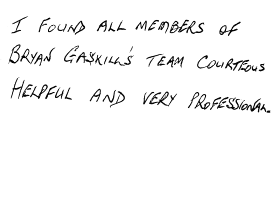 I FOUND ALL MEMBERS OF
BRYAN GASKILL'S TEAM COURTEOUS
HELPFUL AND VERY PROFESSIONAL.